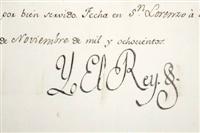 por bien servido. Fecha en Sⁿ Lorenzo à
de Noviembre de mil y ochocientos.
Y El Rey.